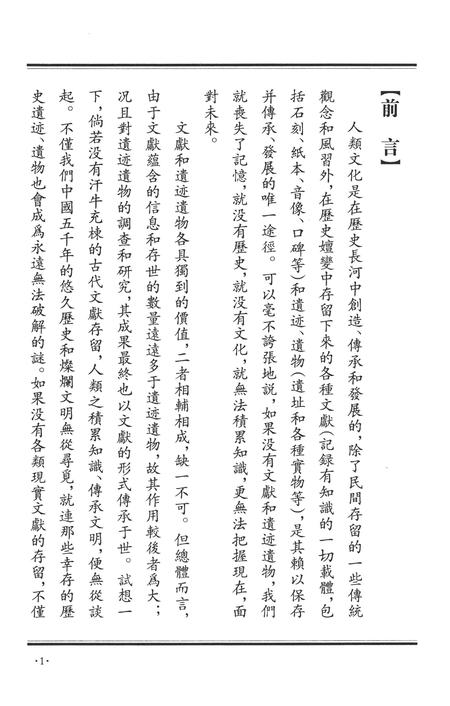 【前言】
人類文化是在歷史長河中創造、傳承和發展的，除了民間存留的一些傳統
觀念和風習外，在歷史嬗變中存留下來的各種文獻（記録有知識的一切載體，包
括石刻、紙本、音像、口碑等）和遺迹、遺物（遺址和各種實物等），是其賴以保存
并傳承、發展的唯一途徑。可以毫不誇張地説，如果没有文獻和遺迹遺物，我們
就喪失了記憶，就没有歷史，就没有文化，就無法積累知識，更無法把握現在，面
對未來。
文獻和遺迹遺物各具獨到的價值，二者相輔相成，缺一不可。但總體而言，
由于文獻藴含的信息和存世的數量遠遠多于遺迹遺物，故其作用較後者爲大；
况且對遺迹遺物的調查和研究，其成果最終也以文獻的形式傳承于世。試想一
下，倘若没有汗牛充棟的古代文獻存留，人類之積累知識、傳承文明，便無從談
起。不僅我們中國五千年的悠久歷史和燦爛文明無從尋覓，就連那些幸存的歷
史遺迹、遺物也會成爲永遠無法破解的謎。如果没有各類現實文獻的存留，不僅
·1·